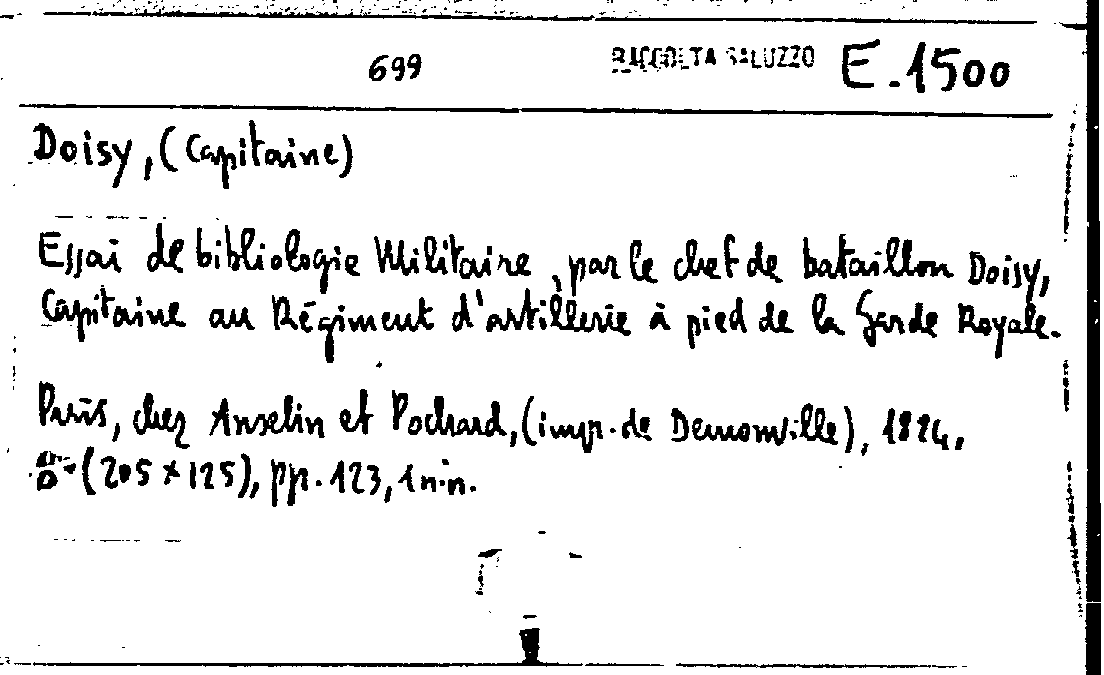 699 RACCOLTA SALUZZO E.1500
Doisy, (Capitaine)
Essai de bibliologie Militaire, par le chef de bataillon Doisy,
Capitaine au Régiment d'artillerie à pied de la Garde Royale.
Paris, chez Anselin et Pochard, (impr. de Demonville), 1824,
8° (205 x 125), pp. 123, 1 n.n.